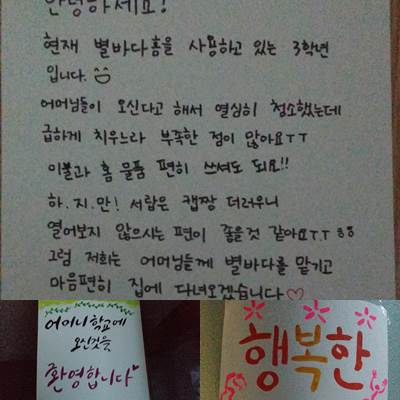 안녕하세요!
현재 별바다홈을 사용하고 있는 3학년
입니다.
어머님들이 오신다고 해서 열심히 청소했는데
급하게 치우느라 부족한 점이 많아요ㅜㅜ
이불과 홈 물품 편히 쓰셔도 되요!!
하.지.만! 서랍은 캡짱 더러우니
열어보지 않으시는 편이 좋을것 같아요ㅜ.ㅜ
그럼 저희는 어머님들께 별바다를 맡기고
마음편히 집에 다녀오겠습니다♡
어머니 학교에
오신것을
환영합니다
행복한